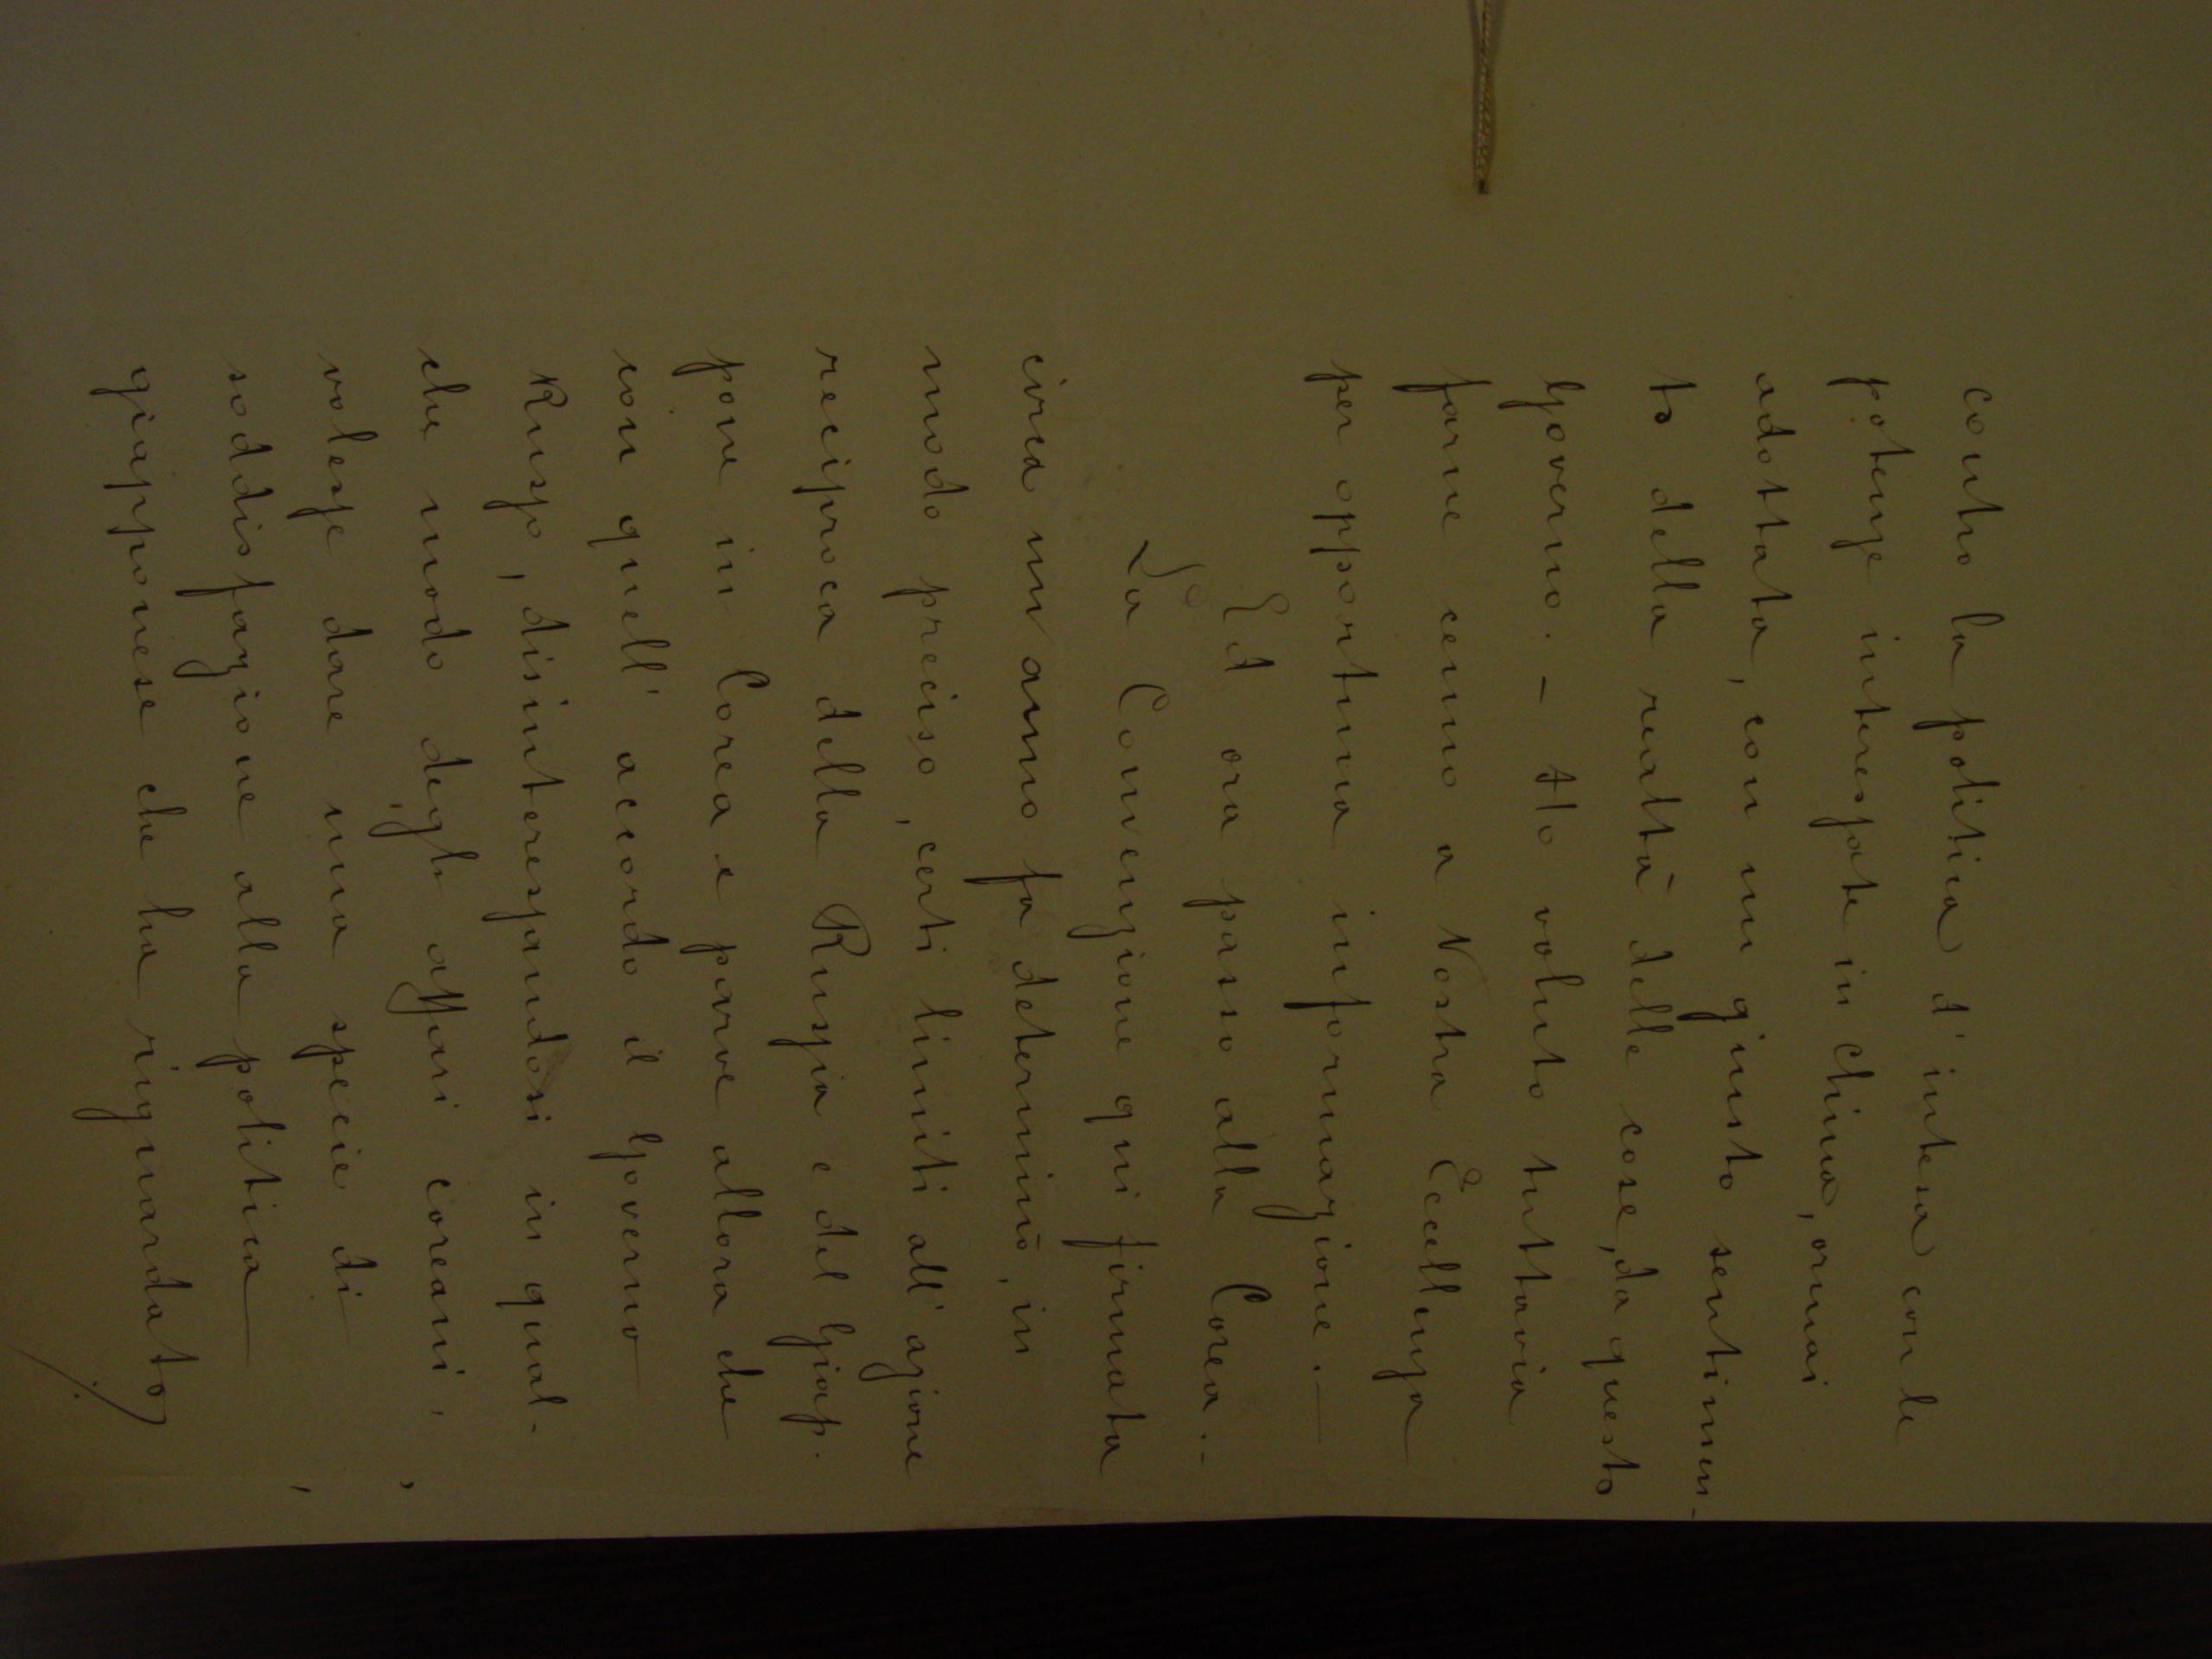 contro la politica d'intesa con le
potenze interessate in China, ormai
adottata, con un giusto sentimen-
to della realtà delle cose, da questo
Governo. - Ho voluto tuttavia
farne cenno a Vostra Eccellenza
per opportuna informazione. -
Ed ora passo alla Corea. -
La Convenzione qui firmata
circa un anno fa determinò, in
modo preciso, certi limiti all'azione
reciproca della Russia e del Giap.
pone in Corea e parve allora che
con quell'accordo il Governo
Russo, disinteressandosi in qual-
che modo degli affari coreani,
volesse dare una specie di
soddisfazione alla politica
giapponese che ha riguardato
./.